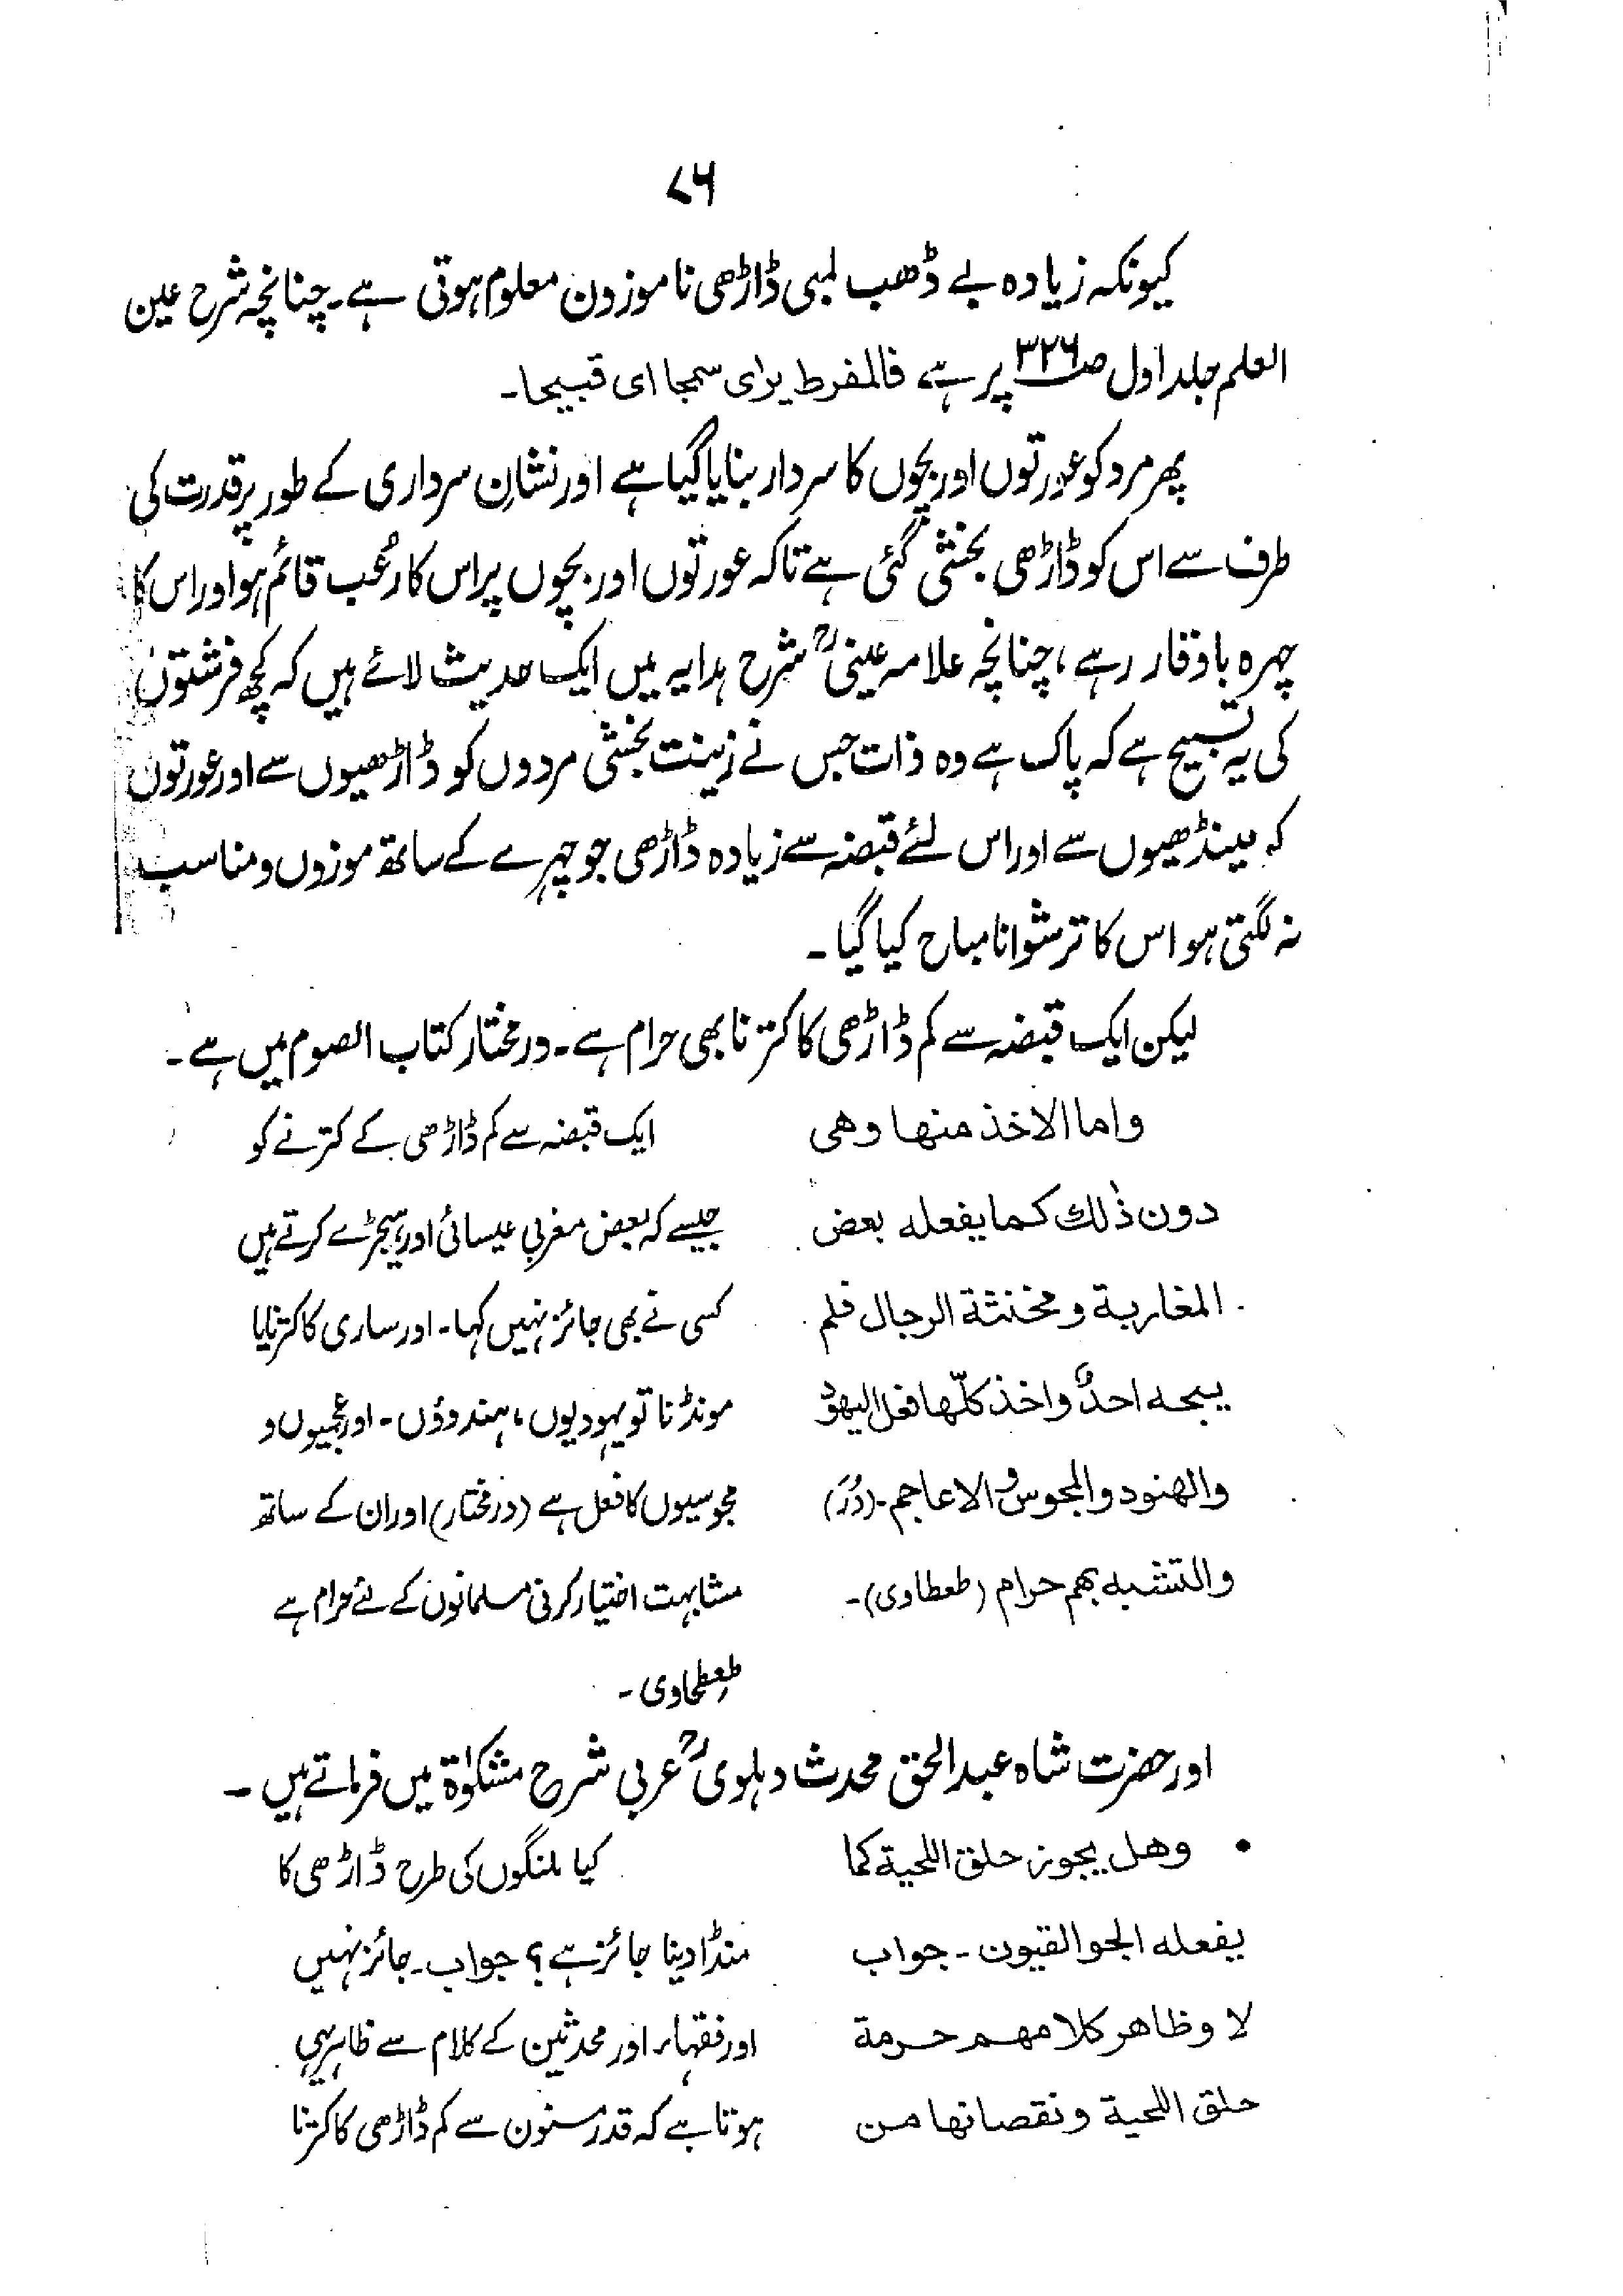 ۷۶
کیونکہ زیادہ بے ڈھب لمبی ڈاڑھی ناموزون معلوم ہوتی ہے۔ چنانچہ شرح عین
العلم جلد اول صـ۳۲۶ پر ہے فالمفرط یرای سمجا ای قبیحا۔
پھر مرد کو عورتوں اور بچوں کا سردار بنایا گیا ہے اور نشانِ سرداری کے طور پر قدرت کی
طرف سے اس کو ڈاڑھی بخشی گئی ہے تاکہ عورتوں اور بچوں پر اس کا رُعب قائم ہو اور اس کا
چہرہ باوقار رہے، چنانچہ علامہ عینیؒ شرح ہدایہ میں ایک حدیث لائے ہیں کہ کچھ فرشتوں
کی یہ تسبیح ہے کہ پاک ہے وہ ذات جس نے زینت بخشی مردوں کو ڈاڑھیوں سے اور عورتوں
کہ مینڈھیوں سے اور اس لئے قبضہ سے زیادہ ڈاڑھی جو چہرے کے ساتھ موزوں و مناسب
نہ لگتی ہو اس کا ترشوانا مباح کیا گیا۔
لیکن ایک قبضہ سے کم ڈاڑھی کا کترنا بھی حرام ہے۔ درمختار کتاب الصوم میں ہے۔
واما الاخذ منها وهی
دون ذٰلك كما یفعله بعض
المغاربة ومخنثة الرجال فلم
یبحه احدٌ واخذ كلّها فعل الیهود
والهنود والمجوس والاعاجم۔ (دُرّ)
والتشبه بهم حرام (طعطاوی)۔
ایک قبضہ سے کم ڈاڑھی کے کترنے کو
جیسے کہ بعض مغربی عیسائی اور ہیجڑے کرتے ہیں
کسی نے بھی جائز نہیں کہا۔ اور ساری کا کترنا یا
مونڈنا تو یہودیوں، ہندوؤں۔ اور عجمیوں و
مجوسیوں کا فعل ہے (درمختار) اور ان کے ساتھ
مشابہت اختیار کرنی مسلمانوں کے لئے حرام ہے
طعطاوی۔
اور حضرت شاہ عبدالحق محدث دہلویؒ عربی شرح مشکوٰۃ میں فرماتے ہیں۔
• وهل یجوز حلق اللحیة كما
یفعله الجوالقیون۔ جواب
لا وظاهر كلامهم حرمة
حلق اللحیة ونقصانها من
کیا ملنگوں کی طرح ڈاڑھی کا
منڈا دینا جائز ہے؟ جواب۔ جائز نہیں
اور فقہاء اور محدثین کے کلام سے ظاہر یہی
ہوتا ہے کہ قدر مسنون سے کم ڈاڑھی کا کترنا